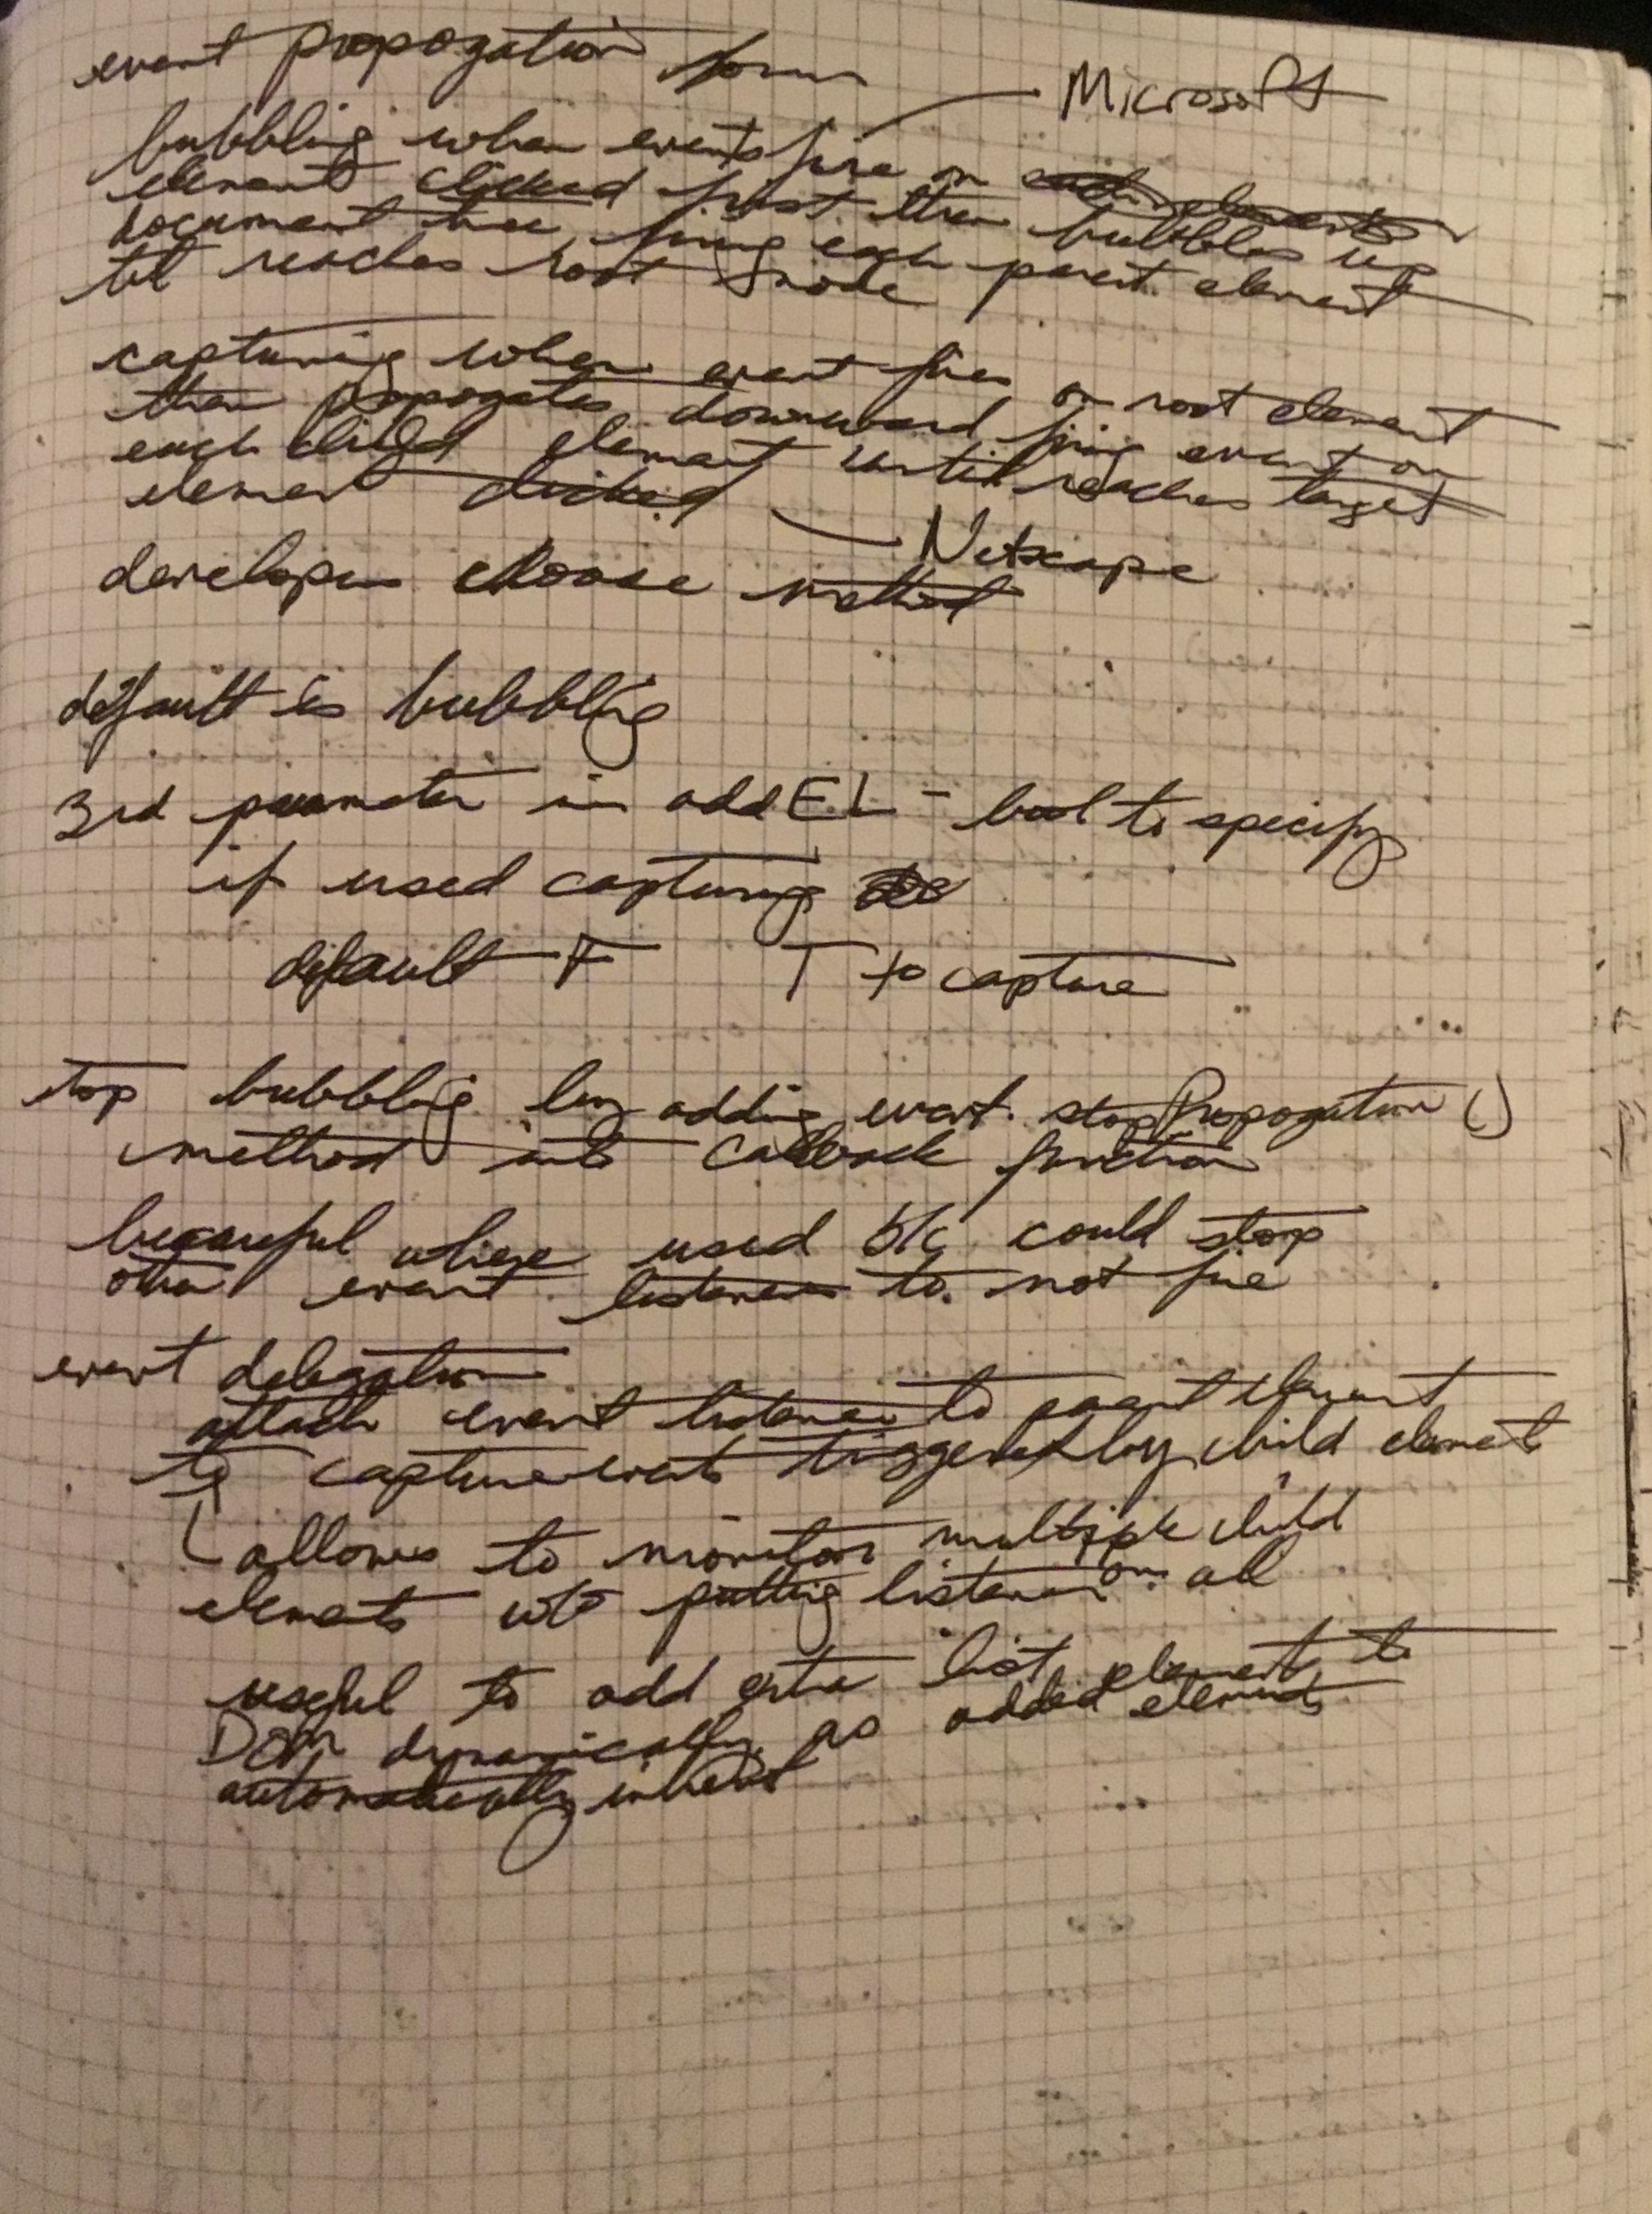 event propogation forms
Microsoft
bubbling when events fire on
element clicked first then bubbles up
document tree firing each parent element
til reaches root node
capturing when event fires on root element
then propogates downward firing event on
each child element until reaches target
element clicked
Netscape
developers choose method
default is bubbling
3rd parameter in addE.L - bool to specify
if used capturing
default F T to capture
stop bubbling by adding event.stopPropogation()
method into callback function
be careful where used b/c could stop
other event listeners to not fire
event delegation
attach event listener to parent element
to capture events triggered by child elements
allows to monitor multiple child
elements w/o putting listener on all
useful to add extra list elements to
DOM dynamically as added elements
automatically inherit